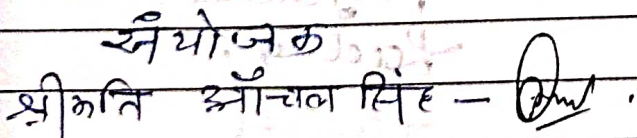 संयोजक
श्रीमति आँचल सिंह -